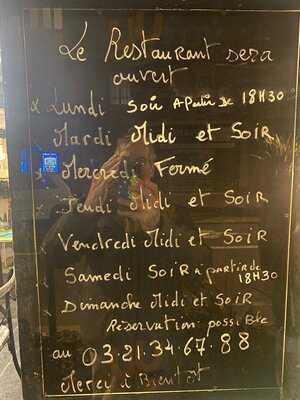 Le Restaurant sera
ouvert
Lundi Soir A Partir de 18H30
Mardi Midi et Soir
Mercredi Fermé
Jeudi Midi et Soir
Vendredi Midi et Soir
Samedi Soir à partir de
18H30
Dimanche Midi et Soir
Réservation possible
au 03.21.34.67.88
Merci à Bientot